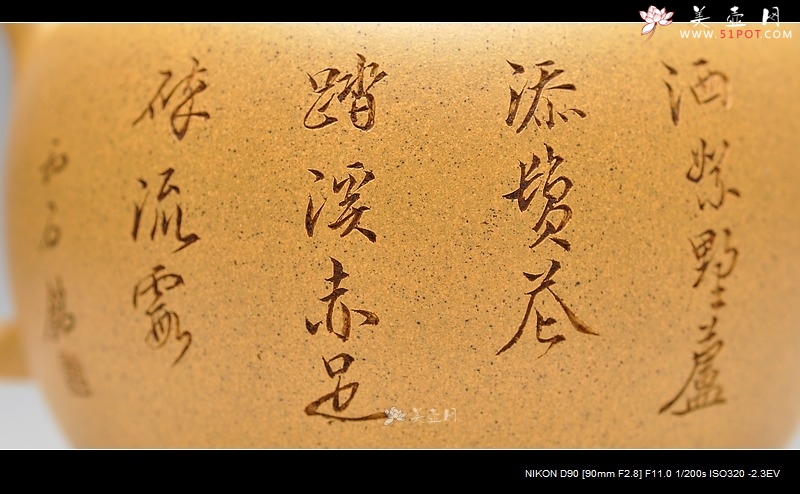 美壶网
WWW.51POT.COM
洒松野芦
添鬓花
踏溪赤足
碎流霞
石
美壶网
NIKON D90 [90mm F2.8] F11.0 1/200s ISO320 -2.3EV